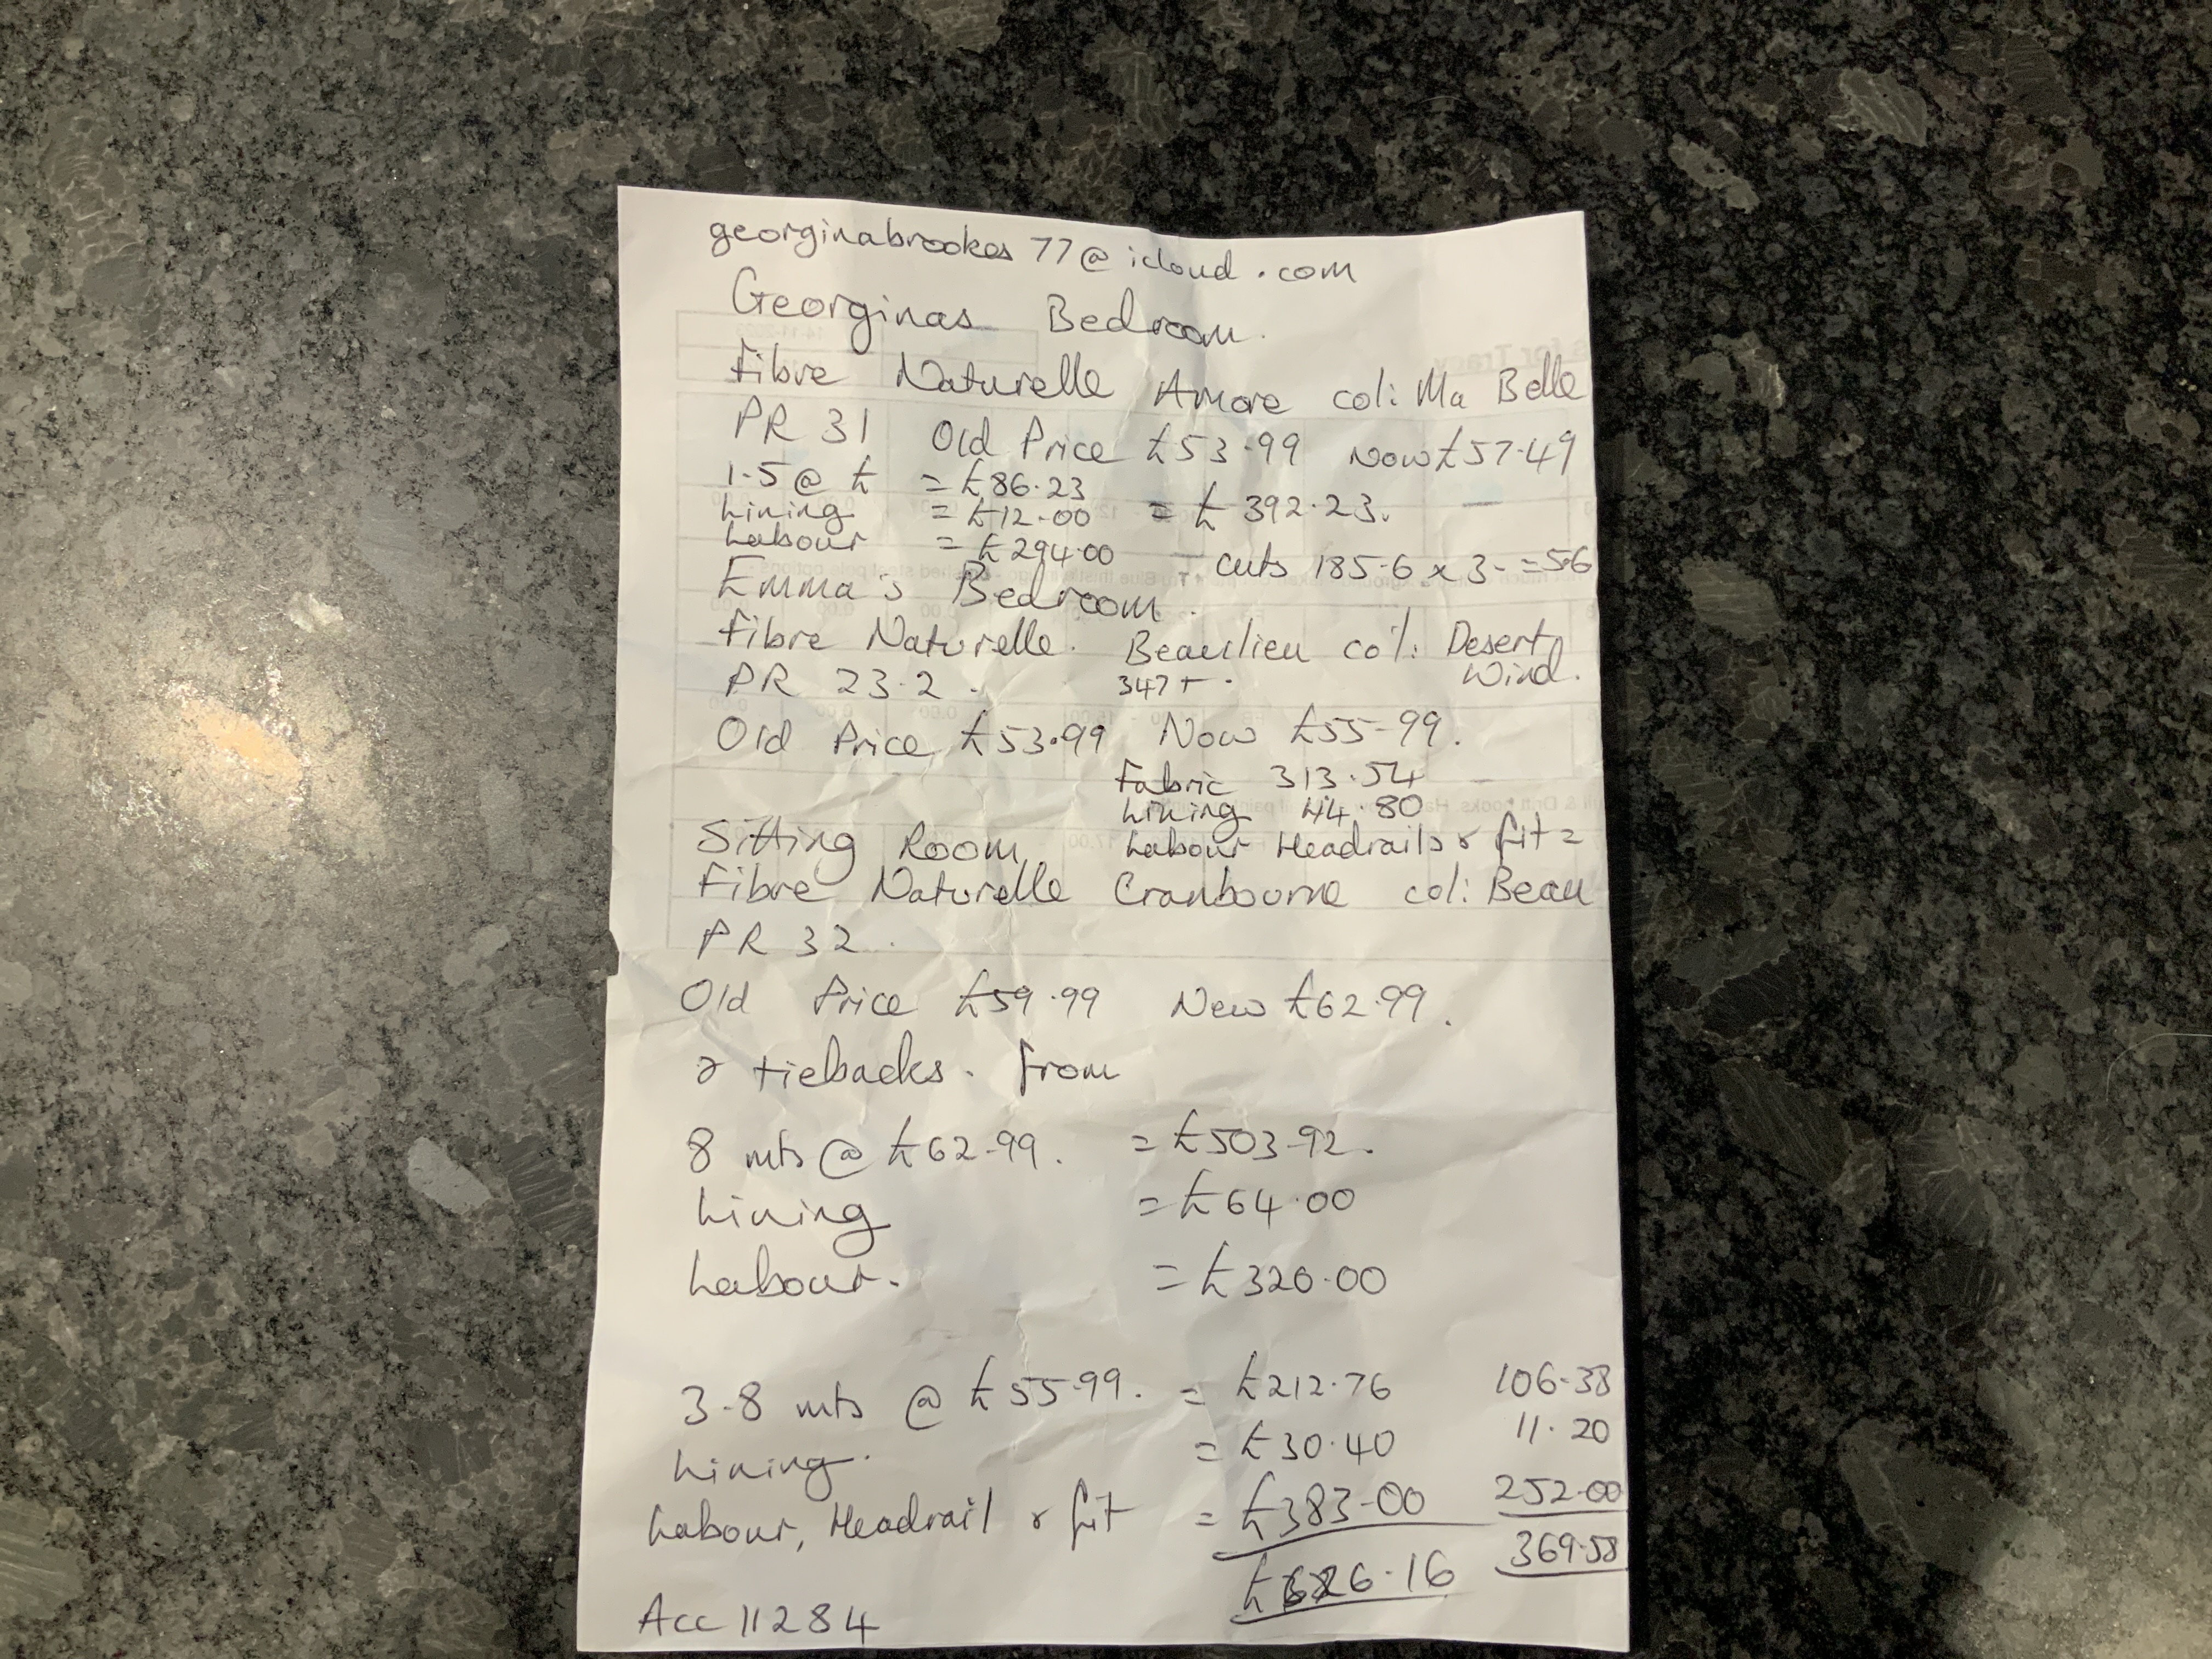 georginabrookes77@icloud.com
Georginas Bedroom.
Fibre Naturelle Amore col: Ma Belle
PR 31 Old Price £53.99 Now £57.49
1.5 @ £ = £86.23
Lining = £12.00 = £392.23.
Labour = £294.00 - cuts 185.6 x 3 = 5.6
Emma's Bedroom.
Fibre Naturelle. Beaulieu col: Desert Wind.
PR 23.2. 347+.
Old Price £53.99 Now £55-99.
Fabric 313.54
Lining 44.80
Sitting Room Labour Headrails & fit =
Fibre Naturelle Cranbourne col: Beau
PR 32.
Old Price £59.99 New £62.99.
& tiebacks. from
8 mts @ £62-99. = £503-92.
Lining = £64.00
Labour. = £320.00
3.8 mts @ £55.99. = £212.76 106.38
Lining. = £30.40 11.20
Labour, Headrail & fit = £383-00 252.00
£626.16 369.58
Acc 11284